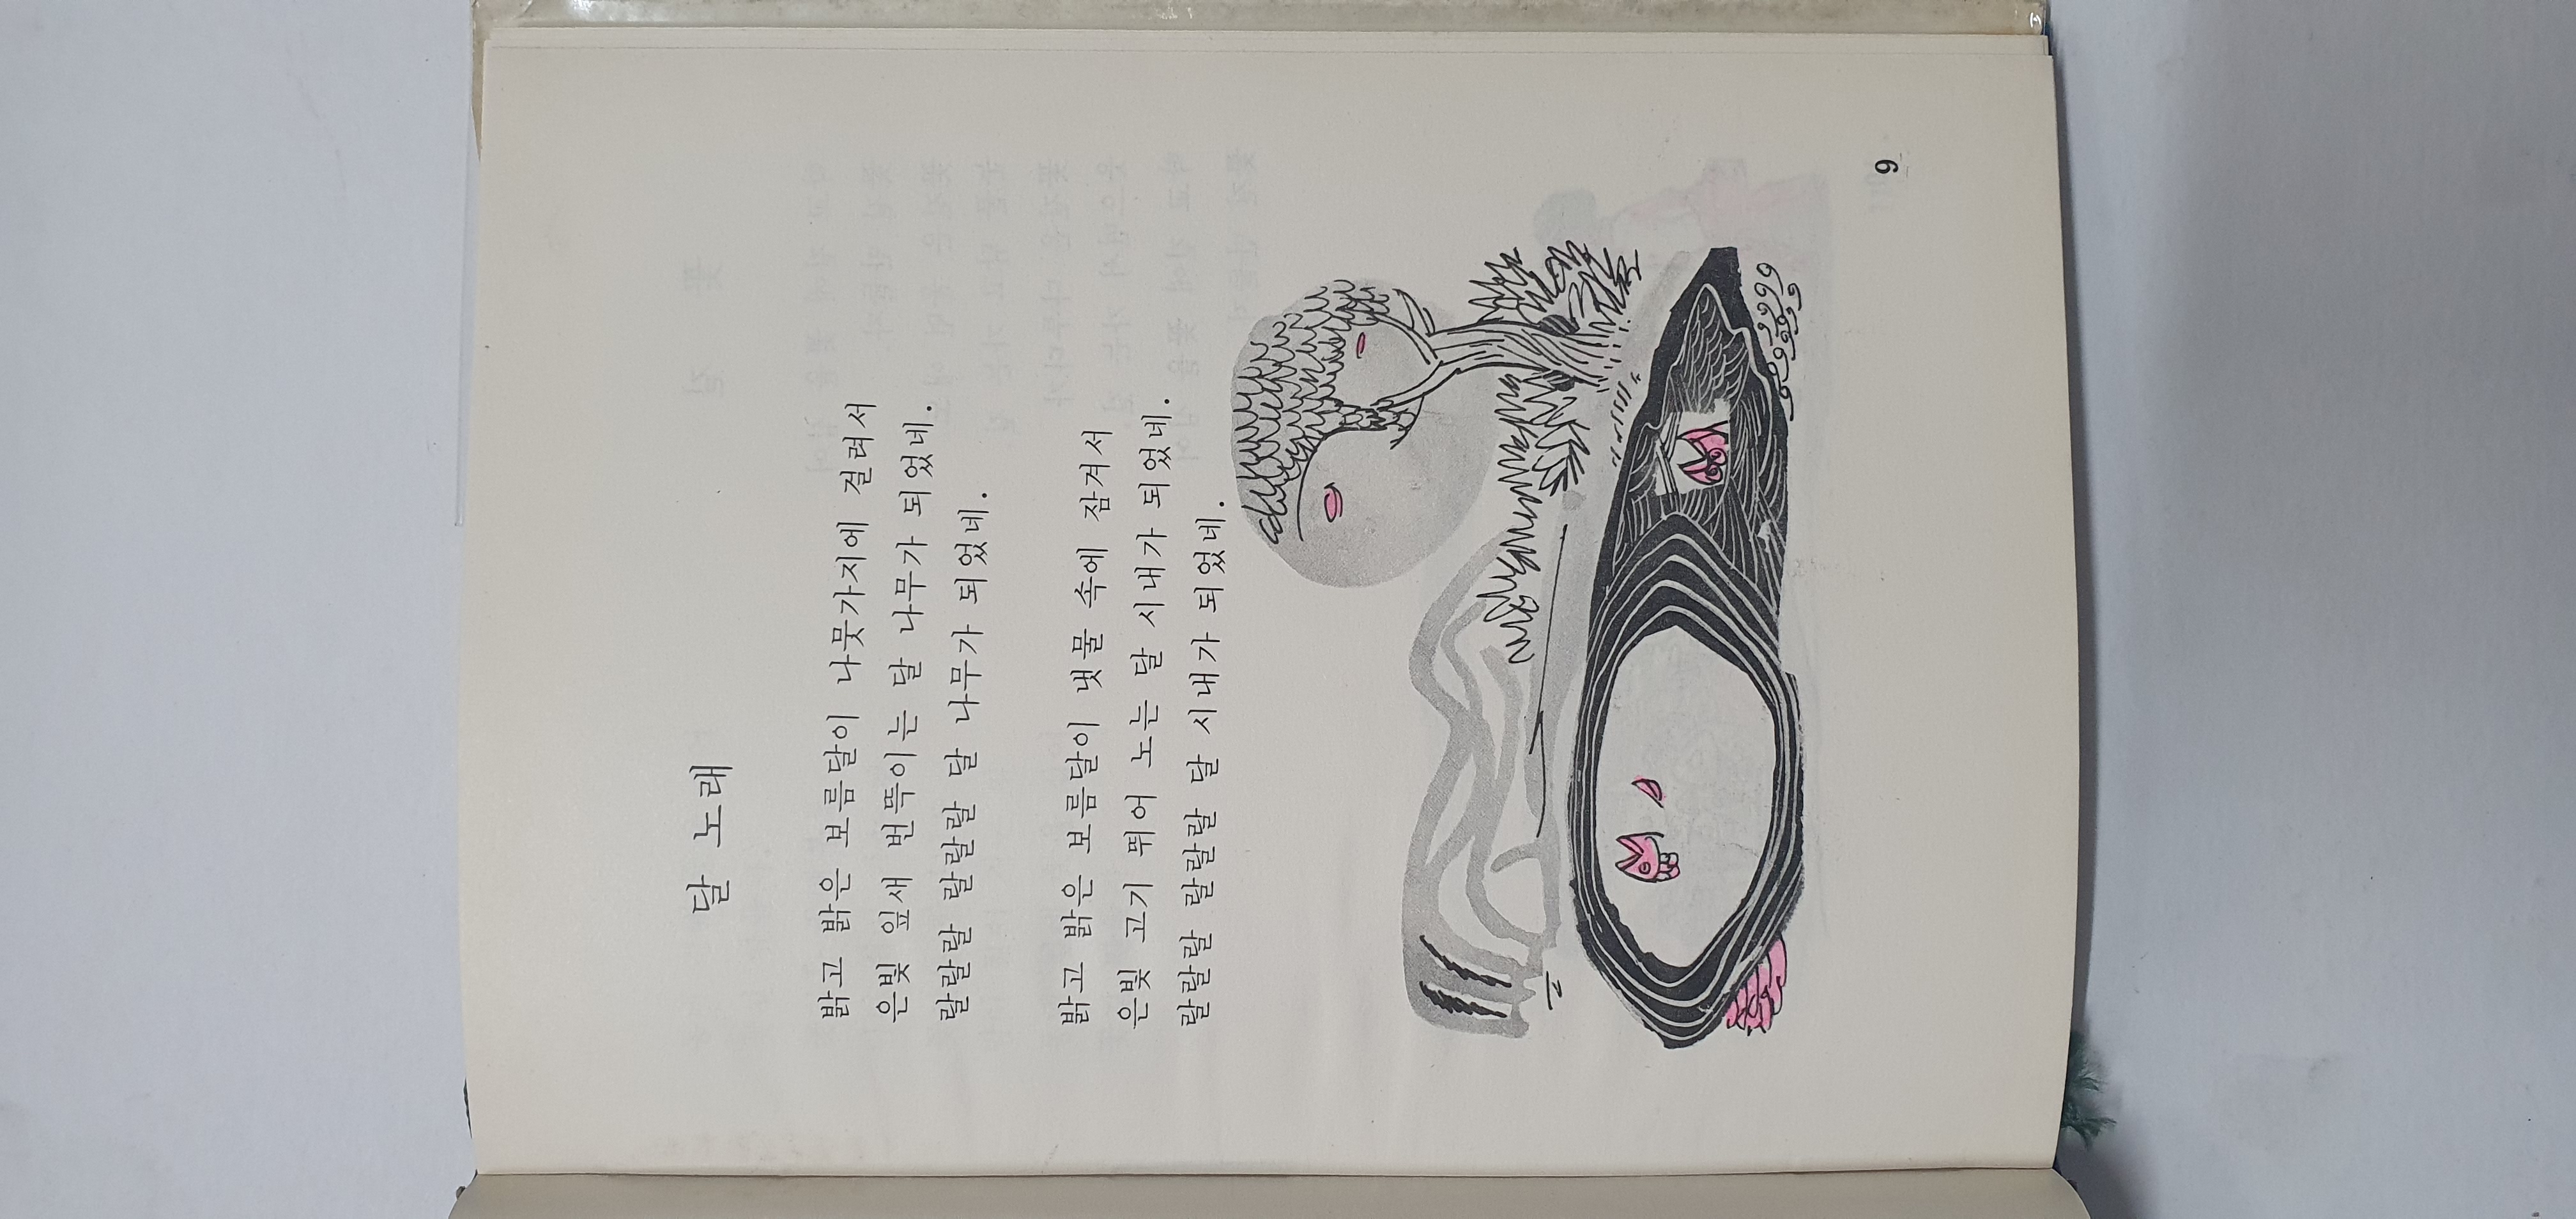 달 노래
밝고 밝은 보름달이 나뭇가지에 걸려서
은빛 잎새 번뜩이는 달 나무가 되었네.
랄랄랄 랄랄랄 달 나무가 되었네.
밝고 밝은 보름달이 냇물 속에 잠겨서
은빛 고기 뛰어 노는 달 시내가 되었네.
랄랄랄 랄랄랄 달 시내가 되었네.
9